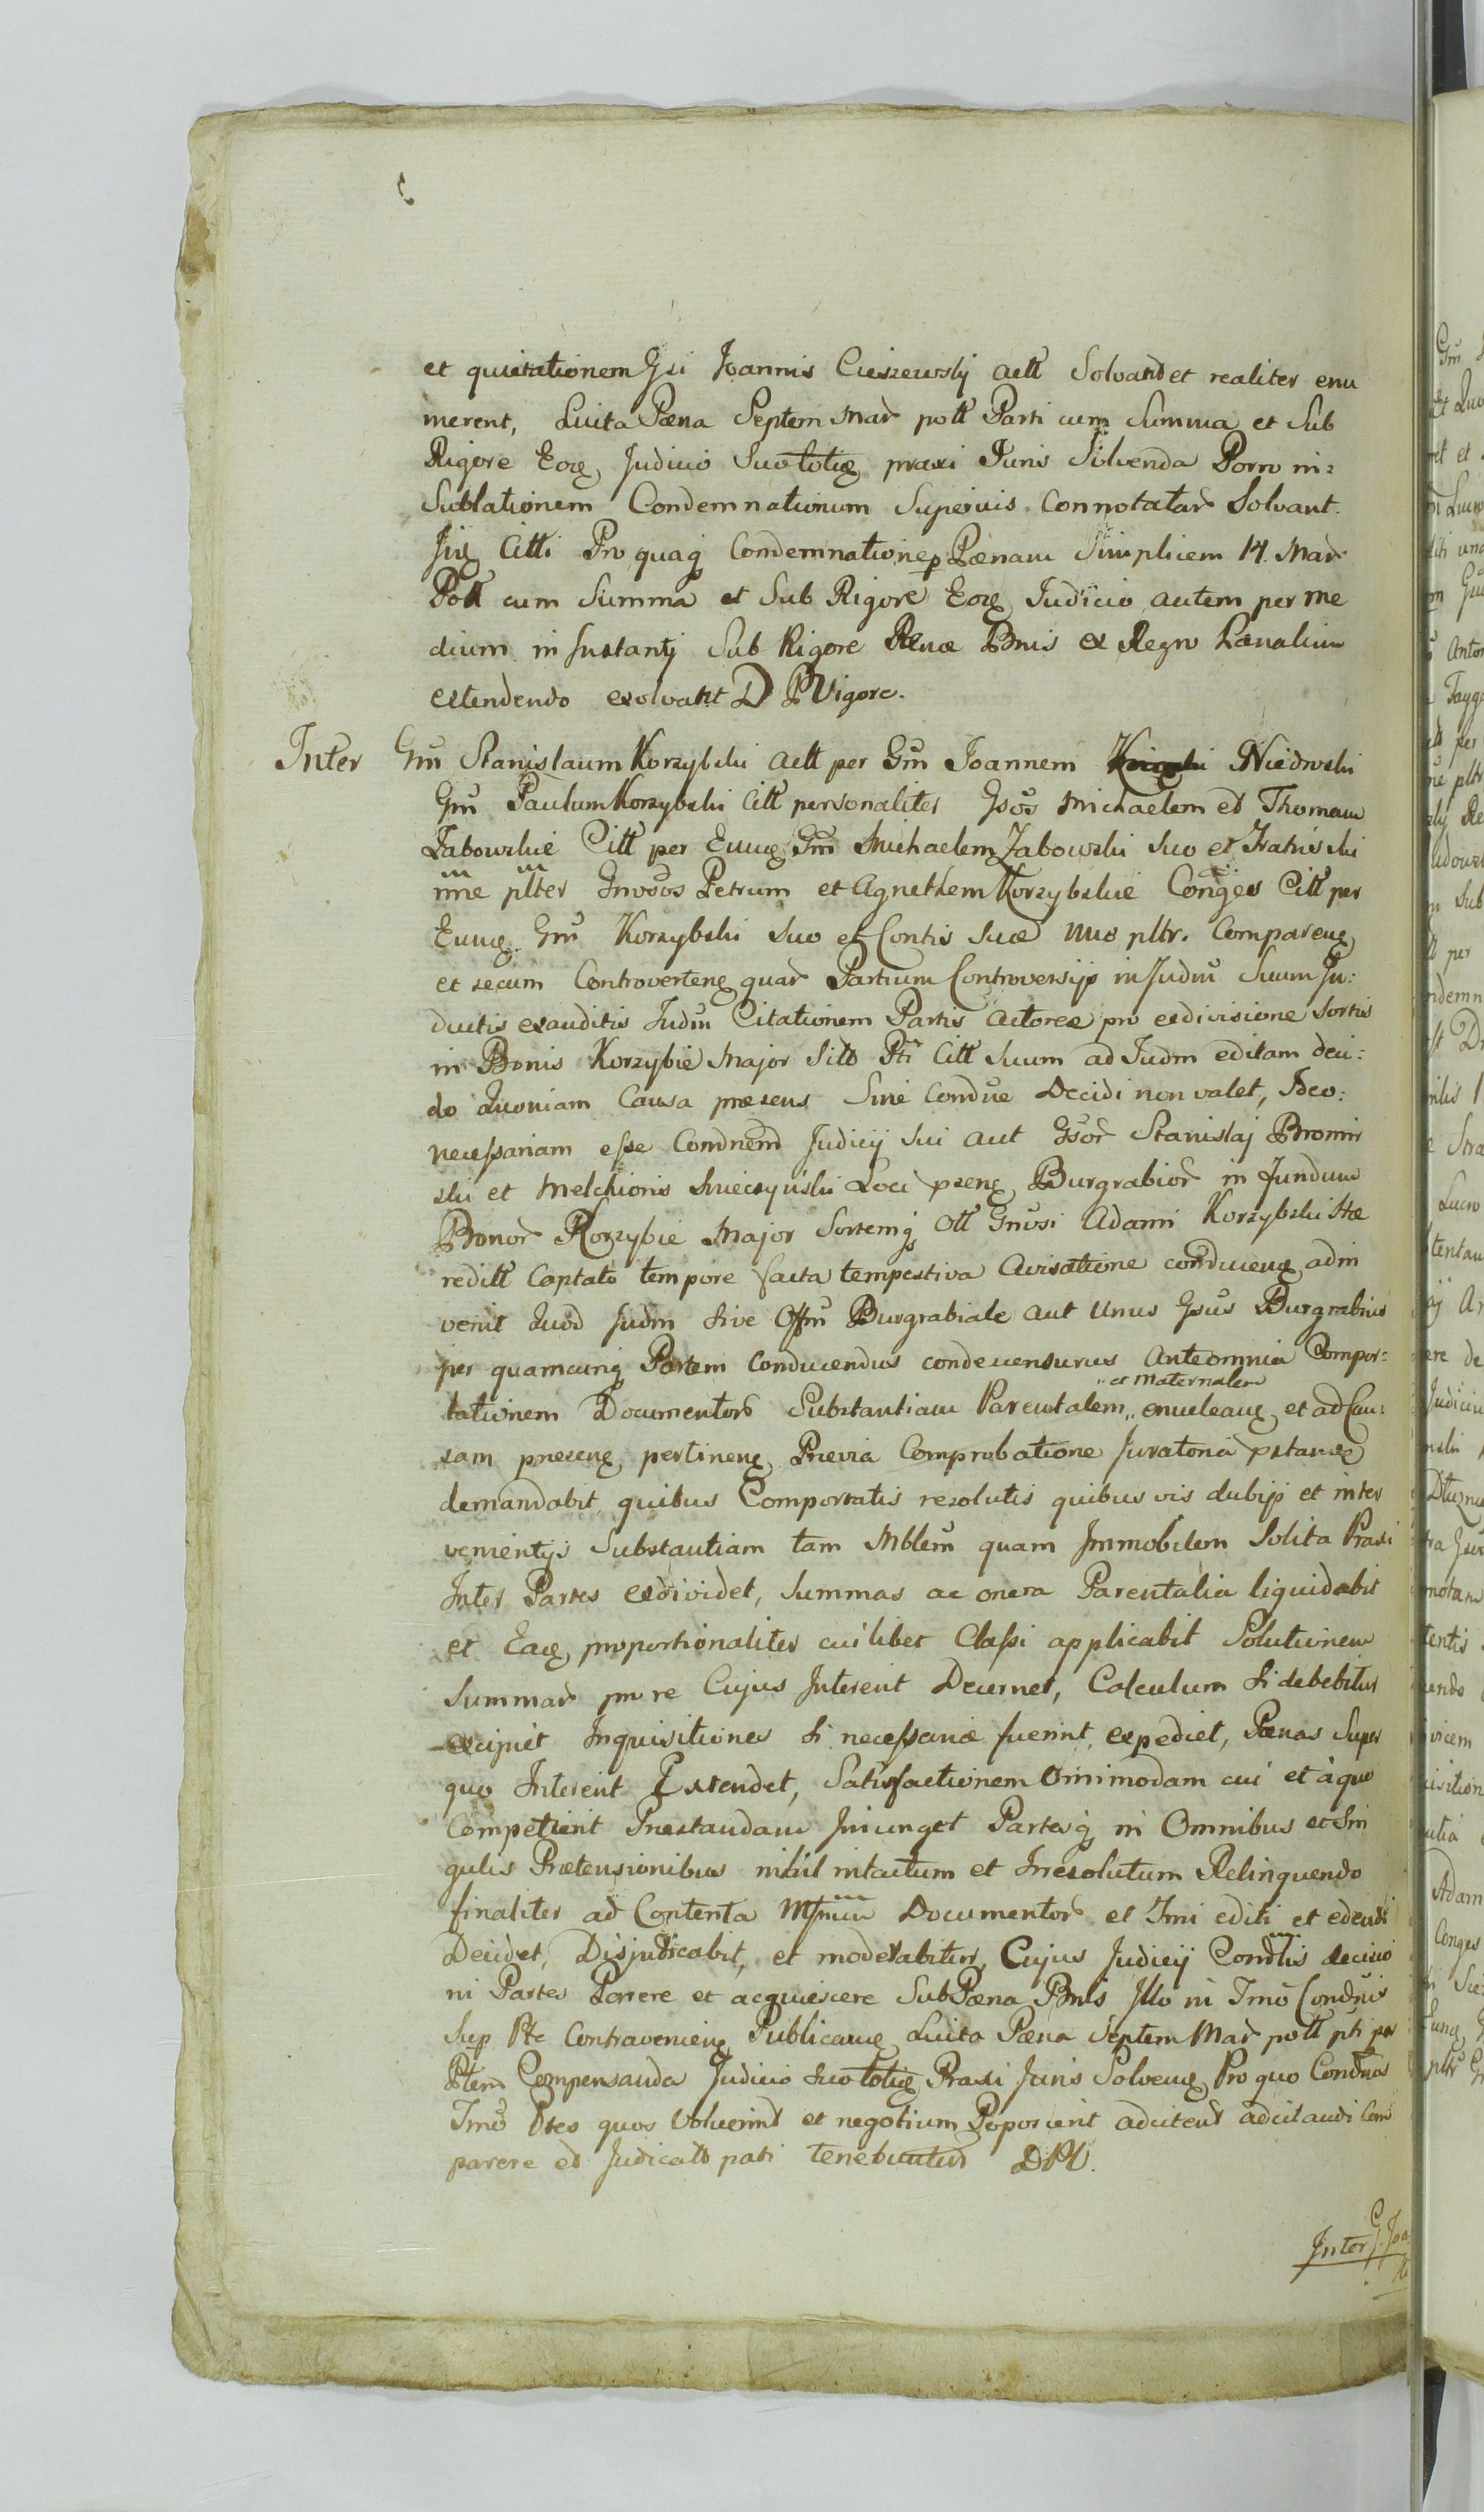 et quietationem Gsi Joannis Cieszewsky actt Solvant et realiter enu
merent, Luita Pæna Septem Mar pott Parti cum Summa et Sub
Rigore Eorq Judicio Suo totiq praxi Juris Solvenda Porro in:
Sublationem Condemnationum Superius Connotatar Solvant.
Citti Pro quaq Condemnatione Pænam Simplicem 14. Mar
Pott cum Summa et Sub Rigore Eorq Judicio autem per me
dium in Instanty Sub Rigore Pænæ Bnis ex Regno
extendendo exolvant D P Vigore.
Inter Gm Stanislaum Korzybski actt per Gm Joannem Niedwski
Gm Paulum Korzybski Citt personaliter Gsos Michaelem et Thomam
Zabowskie Citt per Eumq Gm Michaelem Zabowski Suo et Fratris sui
nne plter Gnosos Petrum et Agnethem Korzybskie Conges Citt per
Eumq Gm Korzybski Suo et Contis Suæ nne pltr. Comparenq
et secum Controvertenq quar Partium Controversijs in Judm Suum In:
ductis exauditis Judm Citationem Partis Actoreæ pro exdivisione Sortis
in Bonis Korzybie Major Sito Pti Citt Suum ad Judm editam deci:
do Quoniam Causa præsens Sine Condne Decidi non valet, Ideo:
necessariam esse Condnem Judicij Sui aut Gsor Stanislaj Bromir
ski et Melchioris Smieczynski Loci psenq Burgrabior in Fundum
Bonor Korzybie Major Sortemq Ott Gnosi Adami Korzybski Hæ
reditt Captato tempore facta tempestiva Avisatione conducenq adin
venit Quod Judm Sive Offm Burgrabiale aut Unus Gsus Burgrabius
per quamcunq Partem Conducendus condescensurus Anteomnia Compor:
tationem Documentor Substantiam Parentalem " et Maternalem enucleanq et ad Cau:
sam præsenq pertinenq Prævia Comprobatione Juratoria pstanda
demandabit, quibus Comportatis resolutis quibus vis dubijs et inter
venientijs Substantiam tam Mblem quam Immobilem Solita Praxi
Inter Partes exdividet, Summas ac onera Parentalia liquidabit
et Eaq proportionaliter cuilibet Classi applicabit Solutionem
Summar pro re Cujus Intererit Decernet, Calculum Si debebitur
excipiet Inquisitiones Si necessariæ fuerint expediet, Pænas Super
quo Intererit Extendet, Satisfactionem Omnimodam cui et a quo
Competierit Præstandam Injunget Partesq in Omnibus et Sin
gulis Prætensionibus nihil intactum et Irresolutum Relinquendo
finaliter ad Contenta Documentor et Imi editi et edendi
Decidet, Disjudicabit, et moderabitur, Cujus Judicij Condlis decisio
ni Partes Parere et acquiescere Sub Pæna Bnis Illo in Tmo Condnis
Sup Pte Contravenienq Publicanq Luita Pæna Septem Mar pott pti per
Ptem Compensanda Judicio Suo totiq Praxi Juris Solvenq Pro quo Condnis
Tmo Ptes quos Voluerint et negotium Poposcerit adcitent adcitandi Com
parere et Judicato pati tenebuntur DPV.
Inter G. Joa